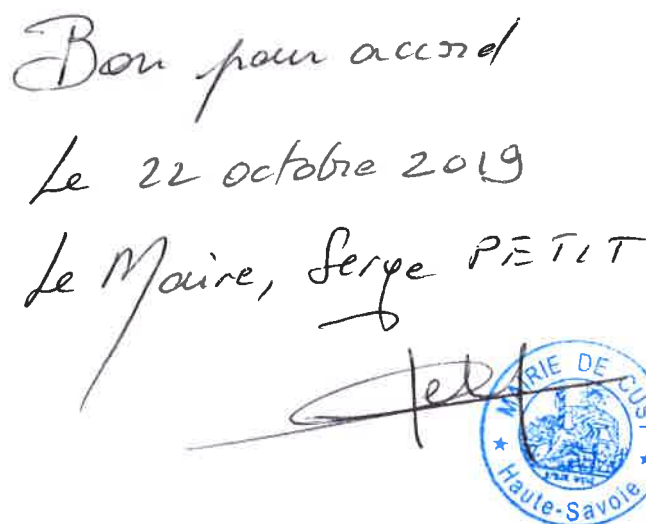 Bon pour accord
Le 22 octobre 2019
Le Maire, Serge PETIT
MAIRIE DE CUSY
★ Haute-Savoie ★